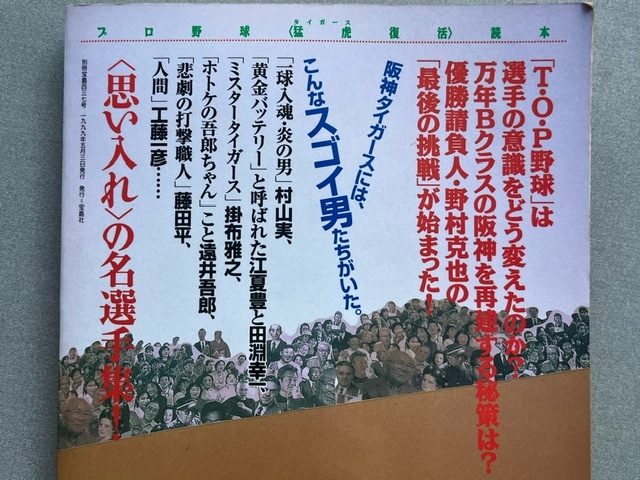 プロ野球〈猛虎復活〉読本
タイガース
「T・O・P野球」は
選手の意識をどう変えたのか?
万年Bクラスの阪神を再建する秘策は?
優勝請負人・野村克也の
「最後の挑戦」が始まった!
阪神タイガースには、
こんなスゴイ男たちがいた。
「一球入魂・炎の男」村山実、
「黄金バッテリー」と呼ばれた江夏豊と田淵幸一、
「ミスタータイガース」掛布雅之、
「ホトケの吾郎ちゃん」こと遠井吾郎、
「悲劇の打撃職人」藤田平、
「人間」工藤一彦……
〈思い入れ〉の名選手集!
別冊宝島四三七号 一九九九年五月三日発行 発行=宝島社